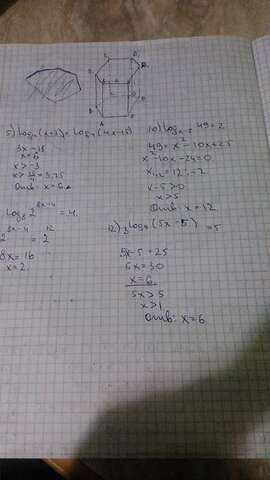 5) log₄(x+3) = log₄(4x-15)
3x = 18
x = 6
x > -3
x > 15/4 = 3,75
Отв: x = 6
log₈ 2^(8x-4) = 4
2^(8x-4) = 2^12
8x = 16
x = 2
10) log x-5 49 = 2
49 = x² - 10x + 25
x² - 10x - 24 = 0
x₁,₂ = 12; -2
x - 5 > 0
x > 5
Отв: x = 12
(5x - 5) = 5
5x - 5 = 25
5x = 30
x = 6
5x > 5
x > 1
Отв: x = 6